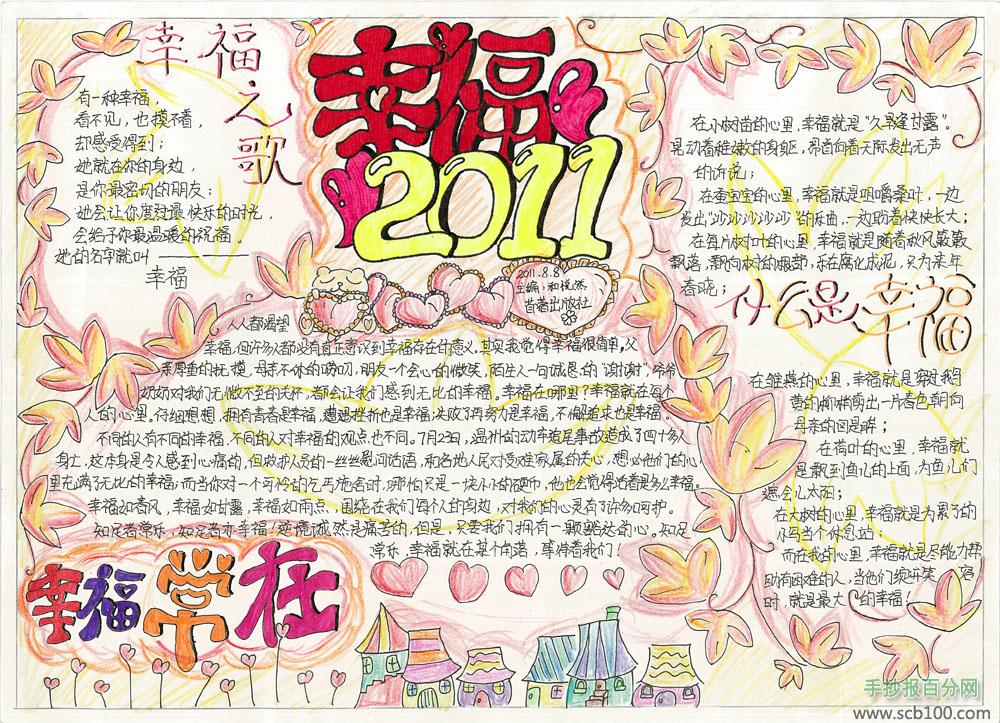 幸福之歌
有一种幸福，
看不见，也摸不着，
却感受得到；
她就在你的身边，
是你最密切的朋友；
她会让你度过最快乐的时光，
会给予你最温暖的祝福。
她的名字就叫
幸福
幸福
2011
2011.8.8
主编：和悦然
首著出版社
人人都渴望
幸福，但许多人都没有真正意识到幸福存在的意义。其实我觉得幸福很简单，父
亲厚重的抚摸，母亲不休的唠叨，朋友一个会心的微笑，陌生人一句诚恳的“谢谢”，爷爷
奶奶对我们无微不至的关怀，都会让我们感到无比的幸福。幸福在哪里？幸福就在每个
人的心里。仔细想想，拥有青春是幸福，遭遇挫折也是幸福，失败了再努力是幸福，不懈追求也是幸福。
不同的人有不同的幸福，不同的人对幸福的观点也不同。7月23日，温州的动车追尾事故造成了四十多人
身亡，这本身是令人感到心痛的，但救护人员的一丝丝慰问话语，和各地人民对受难家属的关心，想必他们的心
里在满了无比的幸福；而当你对一个可怜的乞丐施舍时，哪怕只是一块小小的硬币，他也会觉得活着是多么幸福。
幸福如春风，幸福如甘露，幸福如雨点，围绕在我们每个人的身边，对我们的心灵有了许多呵护。
知足者常乐，知足者亦幸福！悲伤诚然是痛苦的，但是，只要我们拥有一颗豁达的心。知足
常乐，幸福就在某个角落，等待着我们！
在小树苗的心里，幸福就是“久旱逢甘露”。
晃动着稚嫩的身躯，昂首向着天际发出无声
的诉说；
在蚕宝宝的心里，幸福就是咀嚼桑叶，一边
发出“沙沙沙沙沙”的乐曲，一边盼着快快长大；
在每片树叶的心里，幸福就是随着秋风簌簌
飘落，飘向树的根部，乐在腐化成泥，只为来年
春晓；
什么是幸福
在雏燕的心里，幸福就是穿过鹅
黄的柳梢剪出一片春色朝向
母亲的回是解；
在荷叶的心里，幸福就
是飘到鱼儿的上面，为鱼儿们
遮会儿太阳；
在大树的心里，幸福就是为累了的
小鸟当个休息站；
而在我的心里，幸福就是尽能力帮
助有困难的人，当他们绽讲笑容
时，就是最大的幸福！
幸福常在
手抄报百分网
www.scb100.com